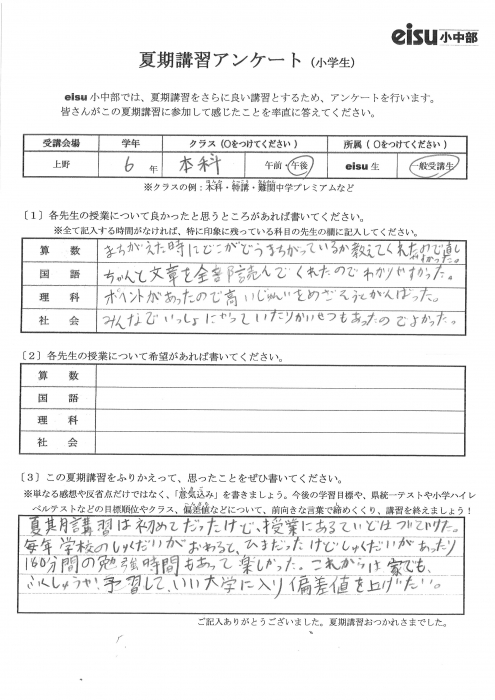 eisu 小中部
夏期講習アンケート（小学生）
eisu 小中部では、夏期講習をさらに良い講習とするため、アンケートを行います。
皆さんがこの夏期講習に参加して感じたことを率直に答えてください。
受講会場 学年 クラス（○をつけてください） 所属（○をつけてください）
上野 6 年 本科 午前・午後 eisu 生 一般受講生
※クラスの例：本科・特講・難関中学プレミアムなど
［１］各先生の授業について良かったと思うところがあれば書いてください。
※全て記入する時間がなければ、特に印象に残っている科目の先生の欄に記入してください。
算 数 まちがえた時にどこがどうまちがっているか教えてくれたので直しやすかった。
国 語 ちゃんと文章を全部読んでくれたのでわかりやすかった。
理 科 ポイントがあったので高いじゅんいをめざそうとがんばった。
社 会 みんなでいっしょにやっていたりかいせつもあったのでよかった。
［２］各先生の授業について希望があれば書いてください。
算 数
国 語
理 科
社 会
［３］この夏期講習をふりかえって、思ったことをぜひ書いてください。
※単なる感想や反省点だけではなく、「意気込み」を書きましょう。今後の学習目標や、県統一テストや小学ハイレ
ベルテストなどの目標順位やクラス、偏差値などについて、前向きな言葉で締めくくり、講習を終えましょう！
夏期講習は初めてだったけど、授業にあるていどはついていけた。
毎年学校のしゅくだいがおわると、ひまだったけどしゅくだいがあったり
160分間の勉強時間もあって楽しかった。これからは家でも、
ふくしゅうや予習して、いい大学に入り偏差値を上げたい。
ご記入ありがとうございました。夏期講習おつかれさまでした。